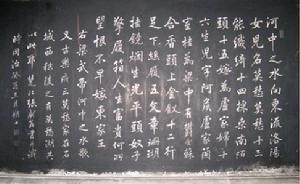 河中之水向東流洛陽
女兒名莫愁莫愁十三
能織綺十四採桑南陌
頭十五嫁為盧家婦十
六生兒字阿侯盧家蘭
室桂為梁中有鬱金蘇
合香頭上金釵十二行
足下絲履五文章珊瑚
挂鏡爛生光平頭奴子
擎履箱人生富貴何所
望恨不早嫁東家王
右梁武帝河中之水歌
莫愁家在石
城西
同治